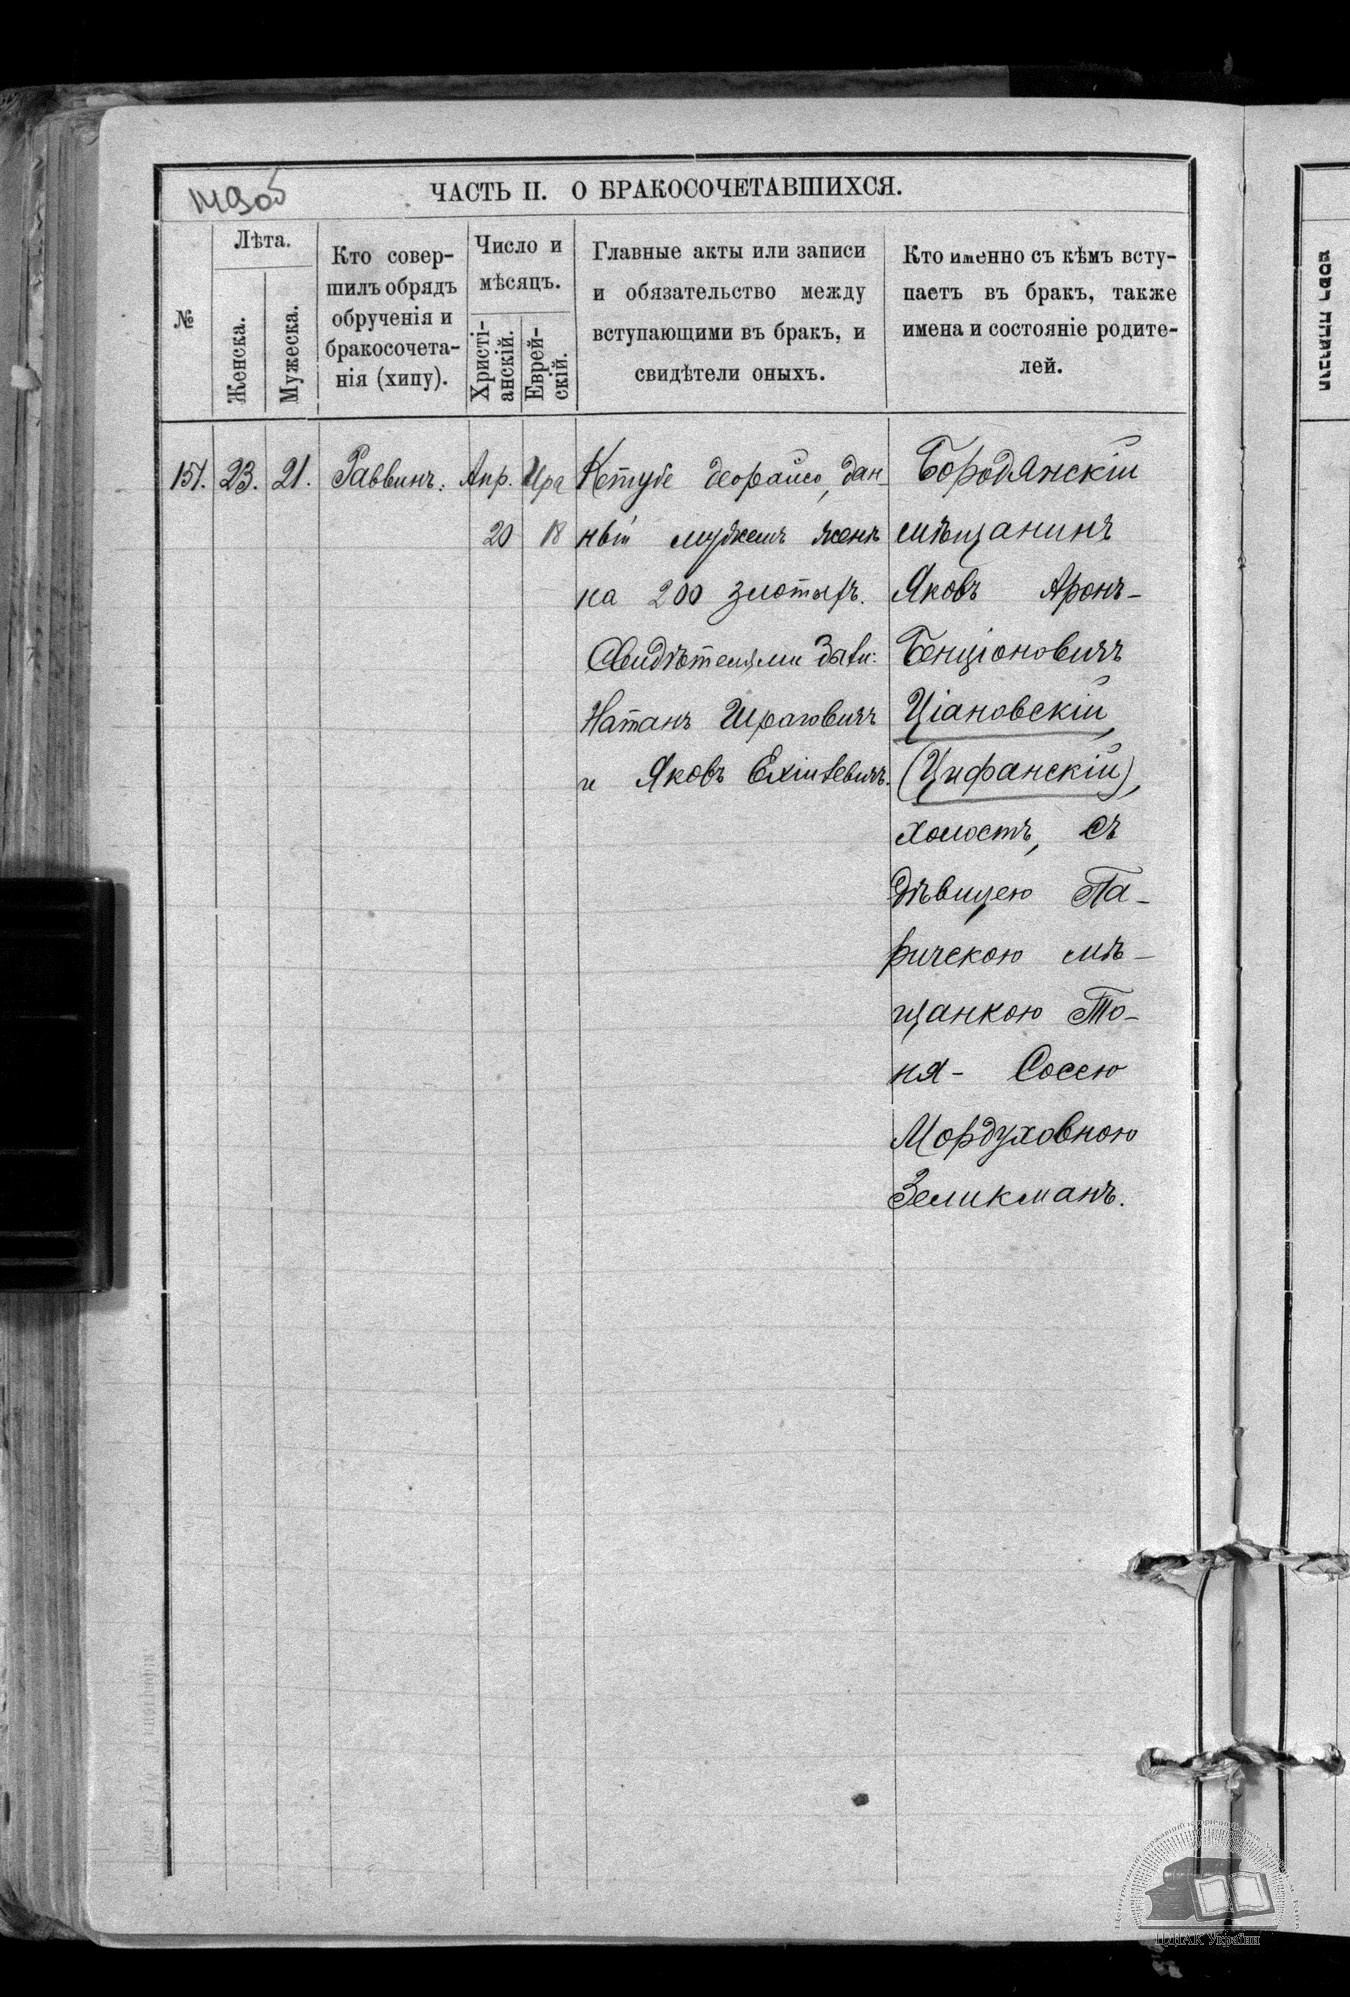 ЧАСТЬ II. О БРАКОСОЧЕТАВШИХСЯ.
№
Лѣта.
Женска.
Мужеска.
Кто совер-
шилъ обрядъ
обрученія и
бракосочета-
нія (хипу).
Число и
мѣсяцъ.
Христі-
анскій.
Еврей-
скій.
Главные акты или записи
и обязательство между
вступающими въ бракъ, и
свидѣтели оныхъ.
Кто именно съ кѣмъ всту-
паетъ въ бракъ, также
имена и состояніе родите-
лей.
151. 23. 21. Раввинъ. Апр. Ира
20 18
Кетубе деорайсо, дан
ный мужемъ женѣ
на 200 злотыхъ.
Свидѣтелями
Натанъ Шраговичъ
и Яковъ
Бородянскій
мѣщанинъ
Яковъ Аронъ-
Бенціоновичъ
Ціановскій,
(Цифанскій),
холостъ, съ
дѣвицею Па-
ричскою мѣ-
щанкою То-
ня- Соссю
Мордуховною
Зеликманъ.
ЦДІАК України